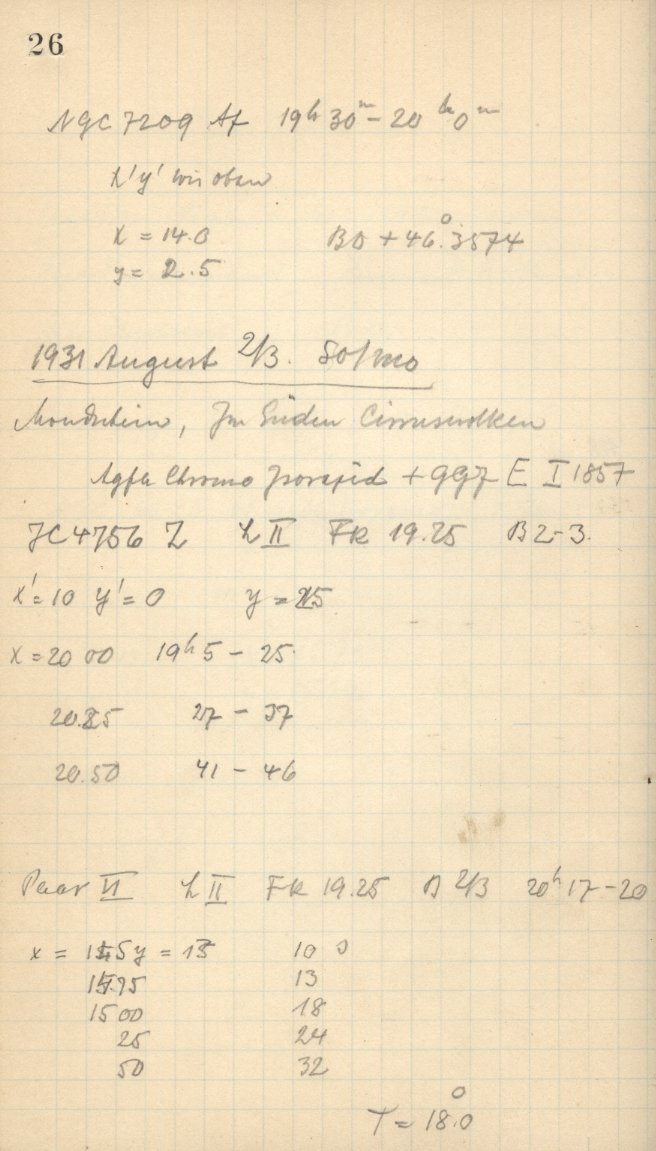 26
NGC 7209 Af 19h 30m - 20h 0m
x'y' wie oben
x = 14.0 BD + 46°.3574
y = 2.5
1931 August 2/3.
Mondschein, Im Süden Cirruswolken
Agfa Chromo Isorapid + 997 E I 1857
JC 4756 Z L II FR 19.25 B 2-3.
x' = 10 y' = 0 y =
x = 20 00 19h 5 - 25
20.25 27 - 37
20.50 41 - 46
Paar VI L II FR 19.25 B 2/3 20h 17 - 20
x = y = 10 s
13
15 00 18
25 24
50 32
T = 18°.0